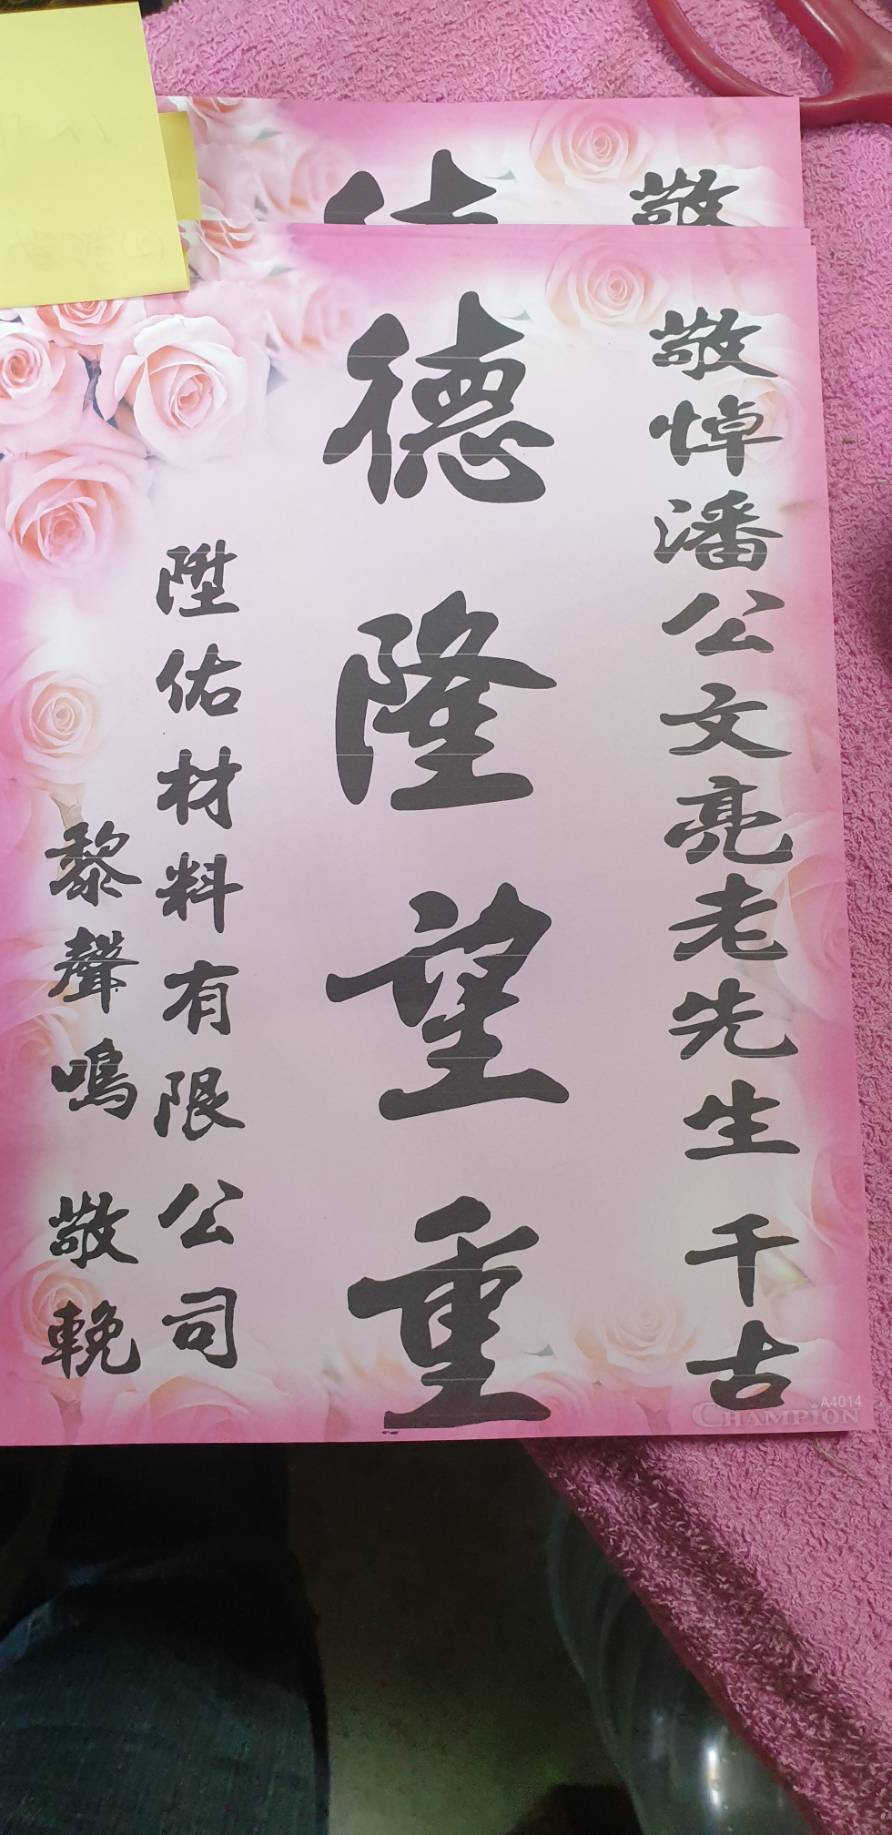 敬
敬悼潘公文亮老先生 千古
德隆望重
陞佑材料有限公司
黎聲鳴 敬輓
A4014
CHAMPION